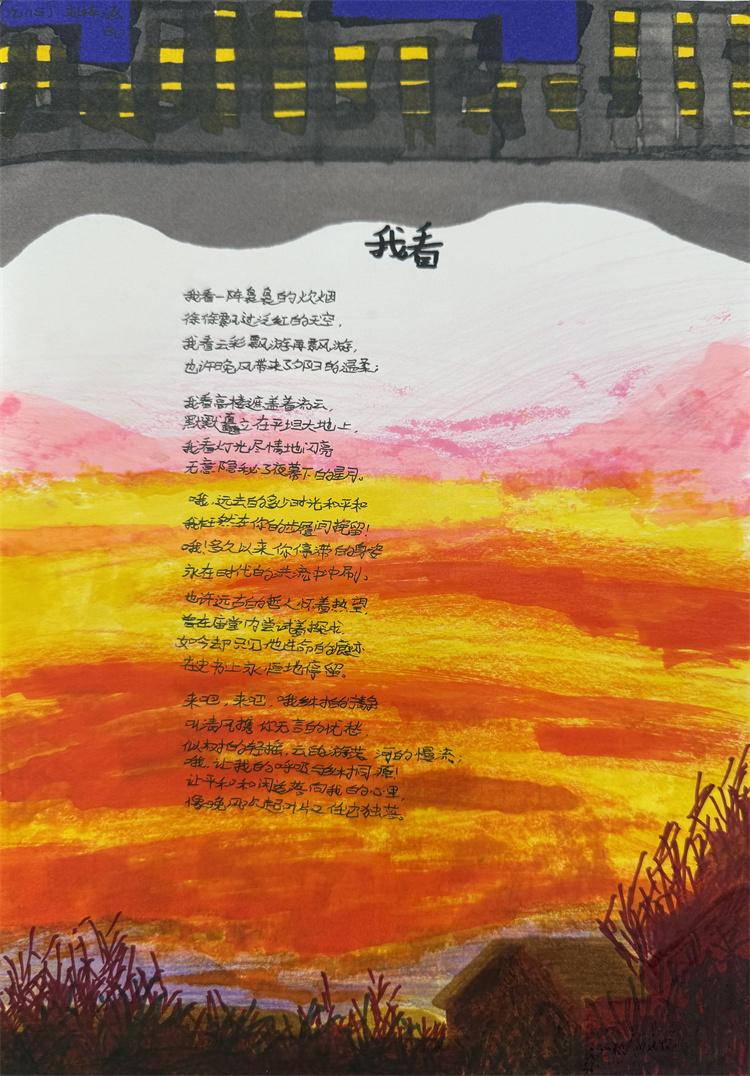 九(15)
我看
我看一阵袅袅的炊烟
徐徐飘过泛红的天空，
我看云彩飘游再飘游，
也许晚风带来了夕阳的温柔；
我看高楼遮盖着流云，
默默矗立在平坦大地上，
我看灯光尽情地闪亮
无意隐秘了夜幕下的星月。
哦，远去的多少时光和平和
我枉然在你的步履间挽留！
哦！多久以来你停滞的身姿
永在时代的洪流中冲刷。
也许远古的哲人怀着热望，
曾在庙堂内尝试着探求，
如今却只见他生命的痕迹
在史书上永恒地停留。
来吧，来吧，哦乡村的静
叫清风携你无言的忧愁，
似树的轻摇，云的游荡，河的慢流，
哦，让我的呼吸与乡村同源！
让平和和闲适落向我的心里，
像晚风久起叶片又任它独落。